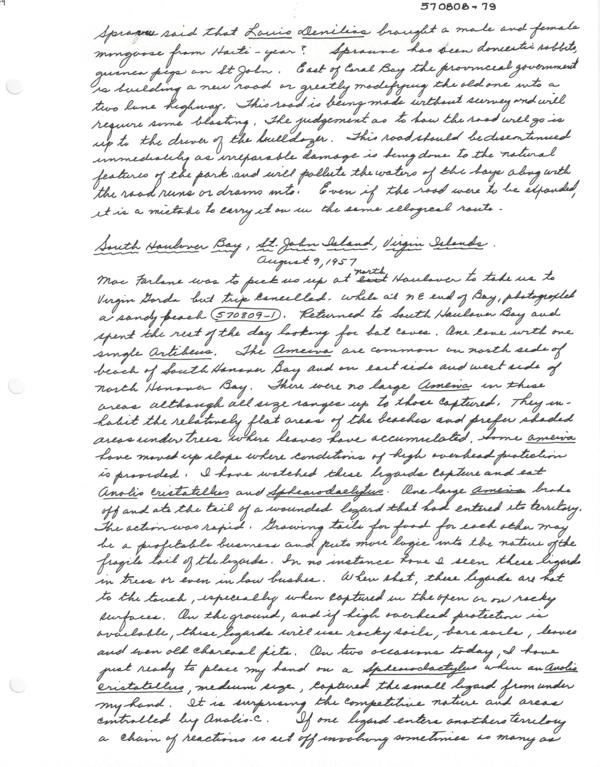 570808-79
Sprauve said that Louis Denilias brought a male and female
mongoose from Haiti - year? Sprauve has seen domestic rabbits,
guinea pigs on St John. East of Coral Bay the provincial government
is building a new road or greatly modifying the old one into a
two lane highway. This road is being made without survey and will
require some blasting. The judgement as to how the road will go is
up to the driver of the bulldozer. This road should be discontinued
immediately as irreparable damage is being done to the natural
features of the park and will pollute the waters of the bays along with
the road runs or drains into. Even if the road were to be expanded,
it is a mistake to carry it on in the same illogical route.
South Haulover Bay, St. John Island, Virgin Islands.
August 9, 1957
Mac Farlane was to pick us up at north Haulover to take us to
Virgin Gorda but trip cancelled. While at NE end of Bay, photographed
a sandy beach 570809-1. Returned to South Haulover Bay and
spent the rest of the day looking for bat caves. One cave with one
single Artibeus. The Ameiva are common on north side of
beach of South Hanover Bay and on east side and west side of
North Hanover Bay. There were no large Ameiva in these
areas although all size ranges up to those captured. They in-
habit the relatively flat areas of the beaches and prefer shaded
areas under trees where leaves have accumulated. Some ameiva
have moved up slope where conditions of high overhead protection
is provided. I have watched these lizards capture and eat
Anolis cristatellus and Sphaerodactylus. One large ameiva broke
off and ate the tail of a wounded lizard that had entered its territory.
The action was rapid. Growing tails for food for each other may
be a profitable business and puts more logic into the nature of the
fragile tail of the lizards. In no instance have I seen these lizards
in trees or even in low bushes. When shot, these lizards are hot
to the touch, especially when captured in the open or on rocky
surfaces. On the ground, and if high overhead protection is
available, these lizards will use rocky soils, bare soils, leaves
and even old charcoal pits. On two occasions today, I have
just ready to place my hand on a Sphaerodactylus when an Anolis
cristatellus, medium size, captured the small lizard from under
my hand. It is surprising the competitive nature and areas
controlled by Anolis c. If one lizard enters anothers territory
a chain of reactions is set off involving sometimes as many as